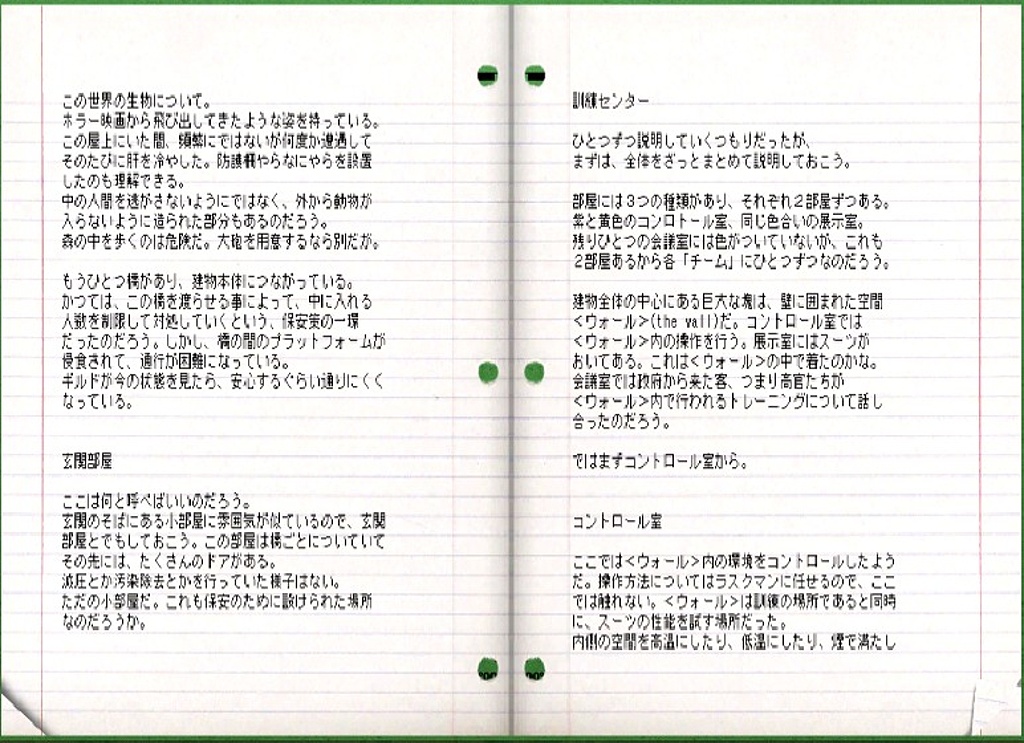 この世界の生物について。
ホラー映画から飛び出してきたような姿を持っている。
この屋上にいた間、頻繁にではないが何度か遭遇して
そのたびに肝を冷やした。防護柵やらなにやらを設置
したのも理解できる。
中の人間を逃がさないようにではなく、外から動物が
入らないように造られた部分もあるのだろう。
森の中を歩くのは危険だ。大砲を用意するなら別だが。
もうひとつ橋があり、建物本体につながっている。
かつては、この橋を渡らせる事によって、中に入れる
人数を制限して対処していくという、保安策の一環
だったのだろう。しかし、橋の間のプラットフォームが
侵食されて、通行が困難になっている。
ギルドが今の状態を見たら、安心するぐらい通りにくく
なっている。
玄関部屋
ここは何と呼べばいいのだろう。
玄関のそばにある小部屋に雰囲気が似ているので、玄関
部屋とでもしておこう。この部屋は橋ごとについていて
その先には、たくさんのドアがある。
減圧とか汚染除去とかを行っていた様子はない。
ただの小部屋だ。これも保安のために設けられた場所
なのだろうか。
訓練センター
ひとつずつ説明していくつもりだったが、
まずは、全体をざっとまとめて説明しておこう。
部屋には3つの種類があり、それぞれ2部屋ずつある。
紫と黄色のコンロトール室、同じ色合いの展示室。
残りひとつの会議室には色がついていないが、これも
2部屋あるから各「チーム」にひとつずつなのだろう。
建物全体の中心にある巨大な塊は、壁に囲まれた空間
<ウォール>(the wall)だ。コントロール室では
<ウォール>内の操作を行う。展示室にはスーツが
おいてある。これは<ウォール>の中で着たのかな。
会議室では政府から来た客、つまり高官たちが
<ウォール>内で行われるトレーニングについて話し
合ったのだろう。
ではまずコントロール室から。
コントロール室
ここでは<ウォール>内の環境をコントロールしたよう
だ。操作方法についてはラスクマンに任せるので、ここ
では触れない。<ウォール>は訓練の場所であると同時
に、スーツの性能を試す場所だった。
内側の空間を高温にしたり、低温にしたり、煙で満たし